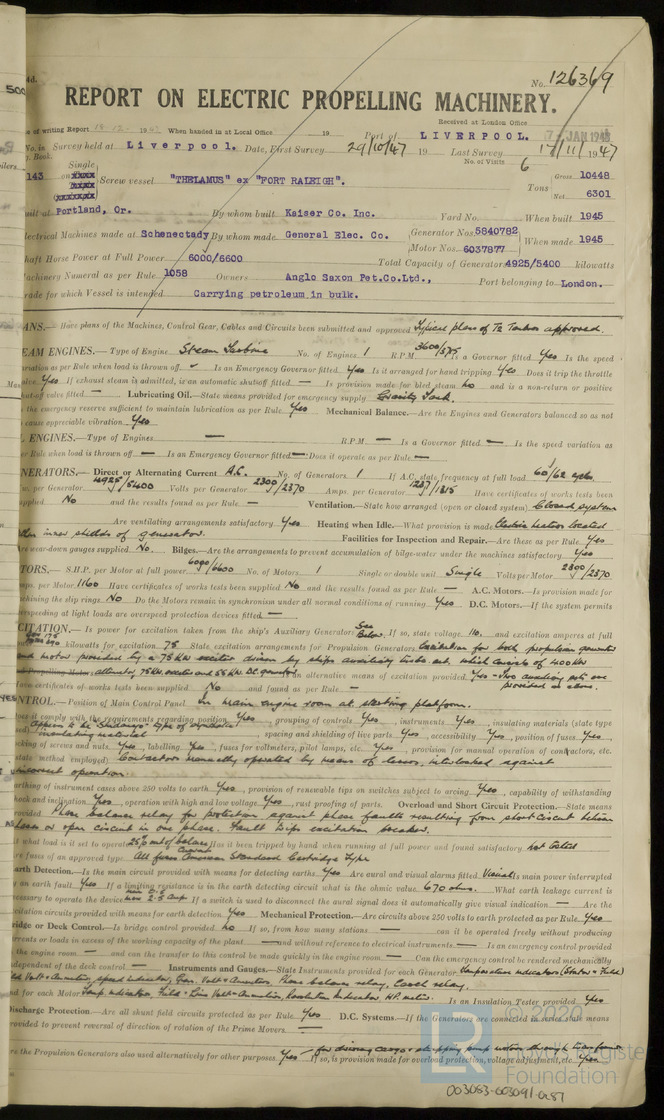 No. 126369
REPORT ON ELECTRIC PROPELLING MACHINERY.
Received at London Office
of writing Report 19 When handed in at Local Office 19 Port of LIVERPOOL. JAN 1948
No. in Survey held at Liverpool. Date, First Survey 29/10/47 19 Last Survey 17/11/1947
Book. No. of Visits 6
Single
143 on Screw vessel "THELAMUS" ex "FORT RALEIGH". Tons Gross 10448
Net 6301
uilt at Portland, Or. By whom built Kaiser Co. Inc. Yard No. When built 1945
lectrical Machines made at Schenectady By whom made General Elec. Co. Generator Nos. 5840782 Motor Nos. 6037877 When made 1945
haft Horse Power at Full Power 6000/6600 Total Capacity of Generator 4925/5400 kilowatts
achinery Numeral as per Rule 1058 Owners Anglo Saxon Pet.Co.Ltd., Port belonging to London.
rade for which Vessel is intended Carrying petroleum in bulk.
ANS.— Have plans of the Machines, Control Gear, Cables and Circuits been submitted and approved Typical plans of T2 Tankers approved.
EAM ENGINES.—Type of Engine Steam Turbine No. of Engines 1 R.P.M. 3600/3715 Is a Governor fitted Yes Is the speed
variation as per Rule when load is thrown off Is an Emergency Governor fitted Yes Is it arranged for hand tripping Yes Does it trip the throttle
Yes If exhaust steam is admitted, is an automatic shutoff fitted — Is provision made for bled steam No and is a non-return or positive
hut-off valve fitted — Lubricating Oil.—State means provided for emergency supply Gravity Tank.
the emergency reserve sufficient to maintain lubrication as per Rule Yes Mechanical Balance.—Are the Engines and Generators balanced so as not
cause appreciable vibration Yes
L ENGINES.—Type of Engines — R.P.M. — Is a Governor fitted — Is the speed variation as
er Rule when load is thrown off — Is an Emergency Governor fitted — Does it operate as per Rule —
NERATORS.— Direct or Alternating Current A.C. No. of Generators 1 If A.C. state frequency at full load 60/62 cycles.
per Generator 4925/5400 Volts per Generator 2300/2370 Amps. per Generator 1237/1315 Have certificates of works tests been
upplied No and the results found as per Rule — Ventilation.—State how arranged (open or closed system) Closed system
Are ventilating arrangements satisfactory Yes Heating when Idle.—What provision is made Electric heaters located
inner shields of generator. Facilities for Inspection and Repair.—Are these as per Rule Yes
re wear-down gauges supplied No. Bilges.—Are the arrangements to prevent accumulation of bilge-water under the machines satisfactory Yes
TORS.—S.H.P. per Motor at full power 6000/6600 No. of Motors 1 Single or double unit Single Volts per Motor 2300/2370
mps. per Motor 1160 Have certificates of works tests been supplied No and the results found as per Rule — A.C. Motors.—Is provision made for
achining the slip rings No Do the Motors remain in synchronism under all normal conditions of running Yes D.C. Motors.—If the system permits
verspeeding at light loads are overspeed protection devices fitted —
CITATION.—Is power for excitation taken from the ship's Auxiliary Generators See Below. If so, state voltage 110. and excitation amperes at full
kilowatts for excitation 75 State excitation arrangements for Propulsion Generators Excitation for both propulsion generator
and motor provided by a 75 KW exciter driven by ships auxiliary turbo set which consists of 400 KW
alternator, 75 KW. exciter and 55 KW. DC generator alternative means of excitation provided. Yes – Two auxiliary sets are
ave certificates of works tests been supplied No and found as per Rule — provided as above.
NTROL.—Position of Main Control Panel In main engine room at starting platform.
oes it comply with the requirements regarding position Yes, grouping of controls Yes, instruments Yes, insulating materials (state type
insulating material, spacing and shielding of live parts Yes, accessibility Yes, position of fuses Yes,
ocking of screws and nuts Yes, labelling Yes, fuses for voltmeters, pilot lamps, etc. Yes, provision for manual operation of contactors, etc.
state method employed) Contactors manually operated by means of levers, interlocked against
incorrect operation
arthing of instrument cases above 250 volts to earth Yes, provision of renewable tips on switches subject to arcing Yes, capability of withstanding
hock and inclination Yes, operation with high and low voltage Yes, rust proofing of parts. Overload and Short Circuit Protection.—State means
provided Phase balance relay for protection against phase faults resulting from short circuit between
phases or open circuit in one phase. Fault trips excitation breaker.
t what load is it set to operate 25% out of balance Current Has it been tripped by hand when running at full power and found satisfactory Not tested
re fuses of an approved type All fuses American Standard Cartridge Type
arth Detection.—Is the main circuit provided with means for detecting earths Yes Are aural and visual alarms fitted Visual Is main power interrupted
y an earth fault Yes If a limiting resistance is in the earth detecting circuit what is the ohmic value 670 ohms. What earth leakage current is
ecessary to operate the device If a switch is used to disconnect the aural signal does it automatically give visual indication — Are the
citation circuits provided with means for earth detection Yes Mechanical Protection.—Are circuits above 250 volts to earth protected as per Rule Yes
ridge or Deck Control.—Is bridge control provided No If so, from how many stations — can it be operated freely without producing
urrents or loads in excess of the working capacity of the plant — and without reference to electrical instruments — Is an emergency control provided
the engine room — and can the transfer to this control be made quickly in the engine room — Can the emergency control be rendered mechanically
dependent of the deck control — Instruments and Gauges.—State Instruments provided for each Generator Temperature indicators (Stator & Field)
Field Volt & Ammeters, speed indicator, Gen. Volt & Ammeters, Phase balance relay, Earth relay.
nd for each Motor Temp indicator, Field & Line Volt & Ammeters, Revolution Indicator. H.P. meter. Is an Insulation Tester provided Yes
Discharge Protection.—Are all shunt field circuits protected as per Rule Yes D.C. Systems.—If the Generators are connected in series state means
rovided to prevent reversal of direction of rotation of the Prime Movers. —
re the Propulsion Generators also used alternatively for other purposes Yes – for driving cargo & stripping pump motors through transformer If so, is provision made for overload protection, voltage adjustment, etc. Yes
© 2020
Lloyd's Register
Foundation
003083-003091-0251